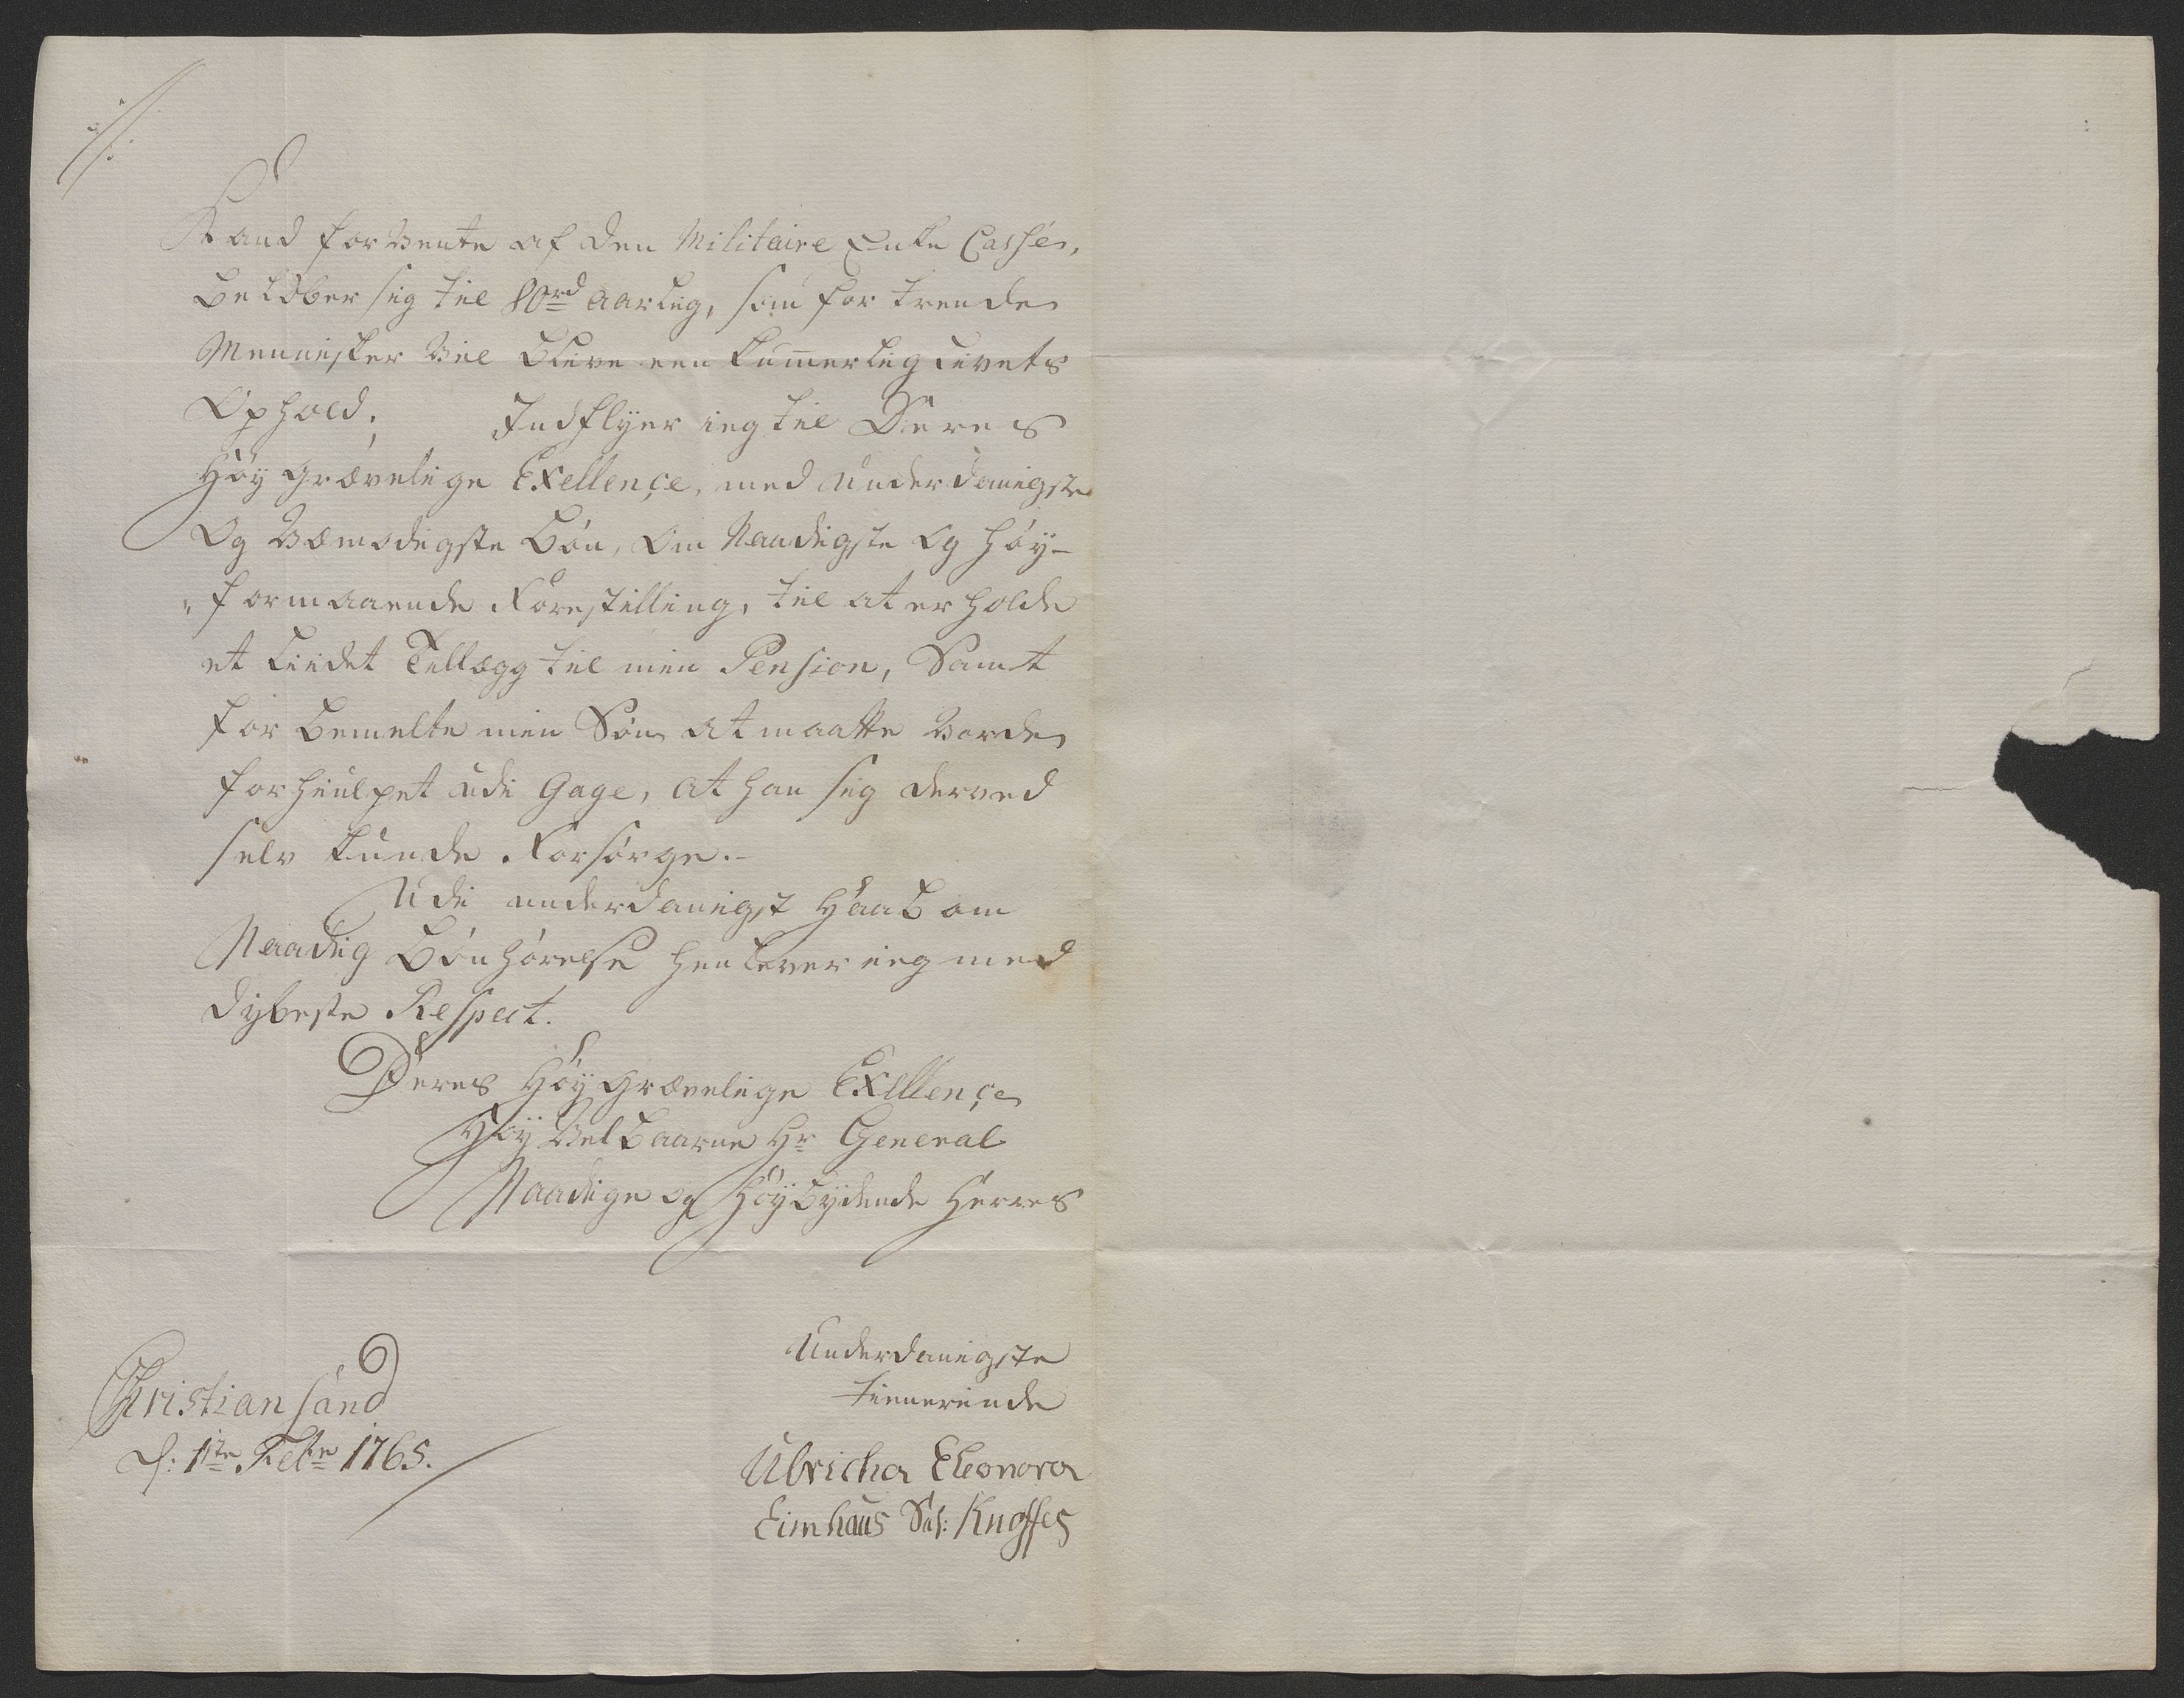 Kand forVente af den Militaire Enke Casse,
beløber sig til 80rd aarlig, som for trende
Mennisker Vil blive een kummerlig Livets
Ophold; Indflyer ieg til Deres
Høy Grævelige Exellençe, med underdanigste
Og Væmodigste bøn, Om Naadigste Og høy-
"formaaende Forestilling, til at erholde
et lidet Tillægg til min Pension, Samt
for bemelte min Søn at maatte Vorde
forhiulpet udi Gage, at han sig derved
selv kunde Forsørge.-
Udi underdanigst Haab om
Naadig Bønhørelse henlever ieg med
dybeste Respect.
Deres Høy Grævelige Exellençe
Høy Velbaarne Hr General
Naadige og Høybydende Herres
Underdanigste
tienerinde
Christiansand
d: 1te Febr 1765.
Ulricha Eleonora
Eimhaus Sal: Knoffes